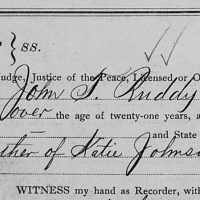 ss.
Judge, Justice of the Peace, Licensed or O
John S. Ruddy
over the age of twenty-one years, a
and State
ther of Katie Johns
WITNESS my hand as Recorder, with